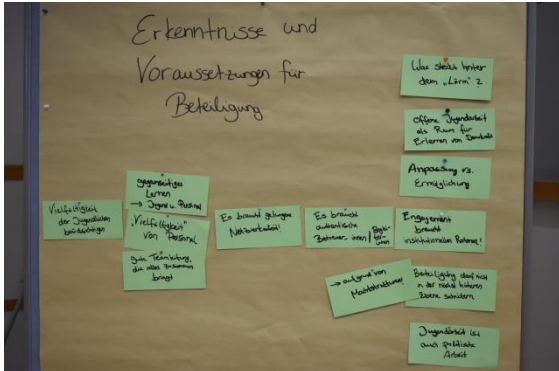 Erkenntnisse und
Voraussetzungen für
Beteiligung
Was steckt hinter
dem „Lärm"?
Offene Jugendarbeit
als Raum für
Erlernen von
Anpassung vs.
Ermöglichung
gegenseitiges
Lernen
→ Jugend u. Personal
Vielfältigkeit
der Jugendlichen
berücksichtigen
„Vielfältigkeit"
von Personal
gute Teamleitung,
die alles zusammen
bringt
Es braucht gelungene
Netzwerkarbeit!
Es braucht
authentische
Betreuer innen/
Engagement
braucht
institutionellen
→ aufgrund von
Machtstrukturen
Beteiligung darf nicht
an der nächst höheren
Ebene scheitern
Jugendarbeit ist
auch politische
Arbeit